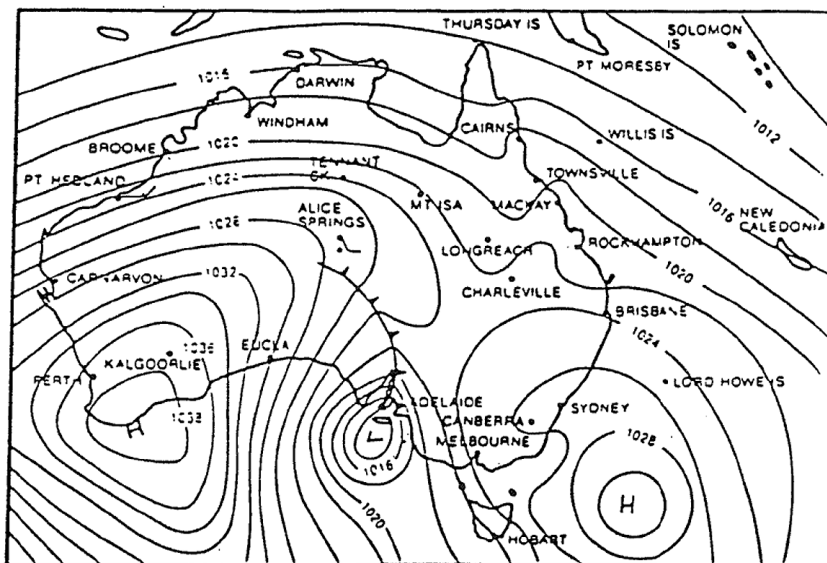 THURSDAY IS
SOLOMON
IS
PT MORESBY
1016
DARWIN
WINDHAM
CAIRNS
WILLIS IS
1012
BROOME
1020
TENNANT
CK
TOWNSVILLE
PT HEDLAND
1024
MT ISA
MACKAY
1016
NEW
CALEDONIA
ALICE
SPRINGS
1028
LONGREACH
ROCKHAMPTON
1020
CARNARVON
1032
CHARLEVILLE
BRISBANE
1024
1036
KALGOORLIE
EUCLA
PERTH
LORD HOWE IS
ADELAIDE
SYDNEY
CANBERRA
1038
H
L
MELBOURNE
1028
1016
1020
H
HOBART